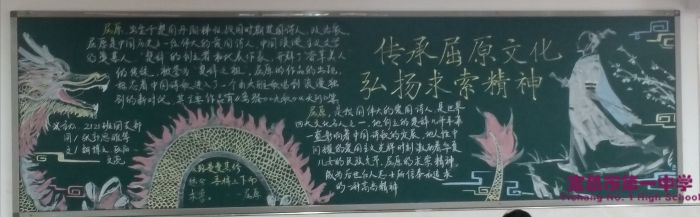 屈原,出生于楚国丹阳秭归,战国时期楚国诗人、政治家。
屈原是中国历史上一位伟大的爱国诗人,中国浪漫主义文学
的奠基人,"楚辞"的创立者和代表作家,开辟了"香草美人"
的传统,被誉为"楚辞之祖",屈原的作品的出现,
标志着中国诗歌进入了一个由大雅歌唱到浪漫独
创的新时代,其主要作品有《离骚》《九歌》《九章》《天问》等
传承屈原文化
弘扬求索精神
屈原,是我国伟大的爱国诗人,是世界
四大文化名人之一,他创立的楚辞几千年来
一直影响着中国诗歌的发展,他人性中
闪耀的爱国主义光辉时刻激励着华夏
儿女的民族气节,屈原的求索精神,
成为后世仁人志士所信奉和追求
的一种高尚精神
2121班团支部
屈原
宜昌市第一中学
Yichang No. 1 High School